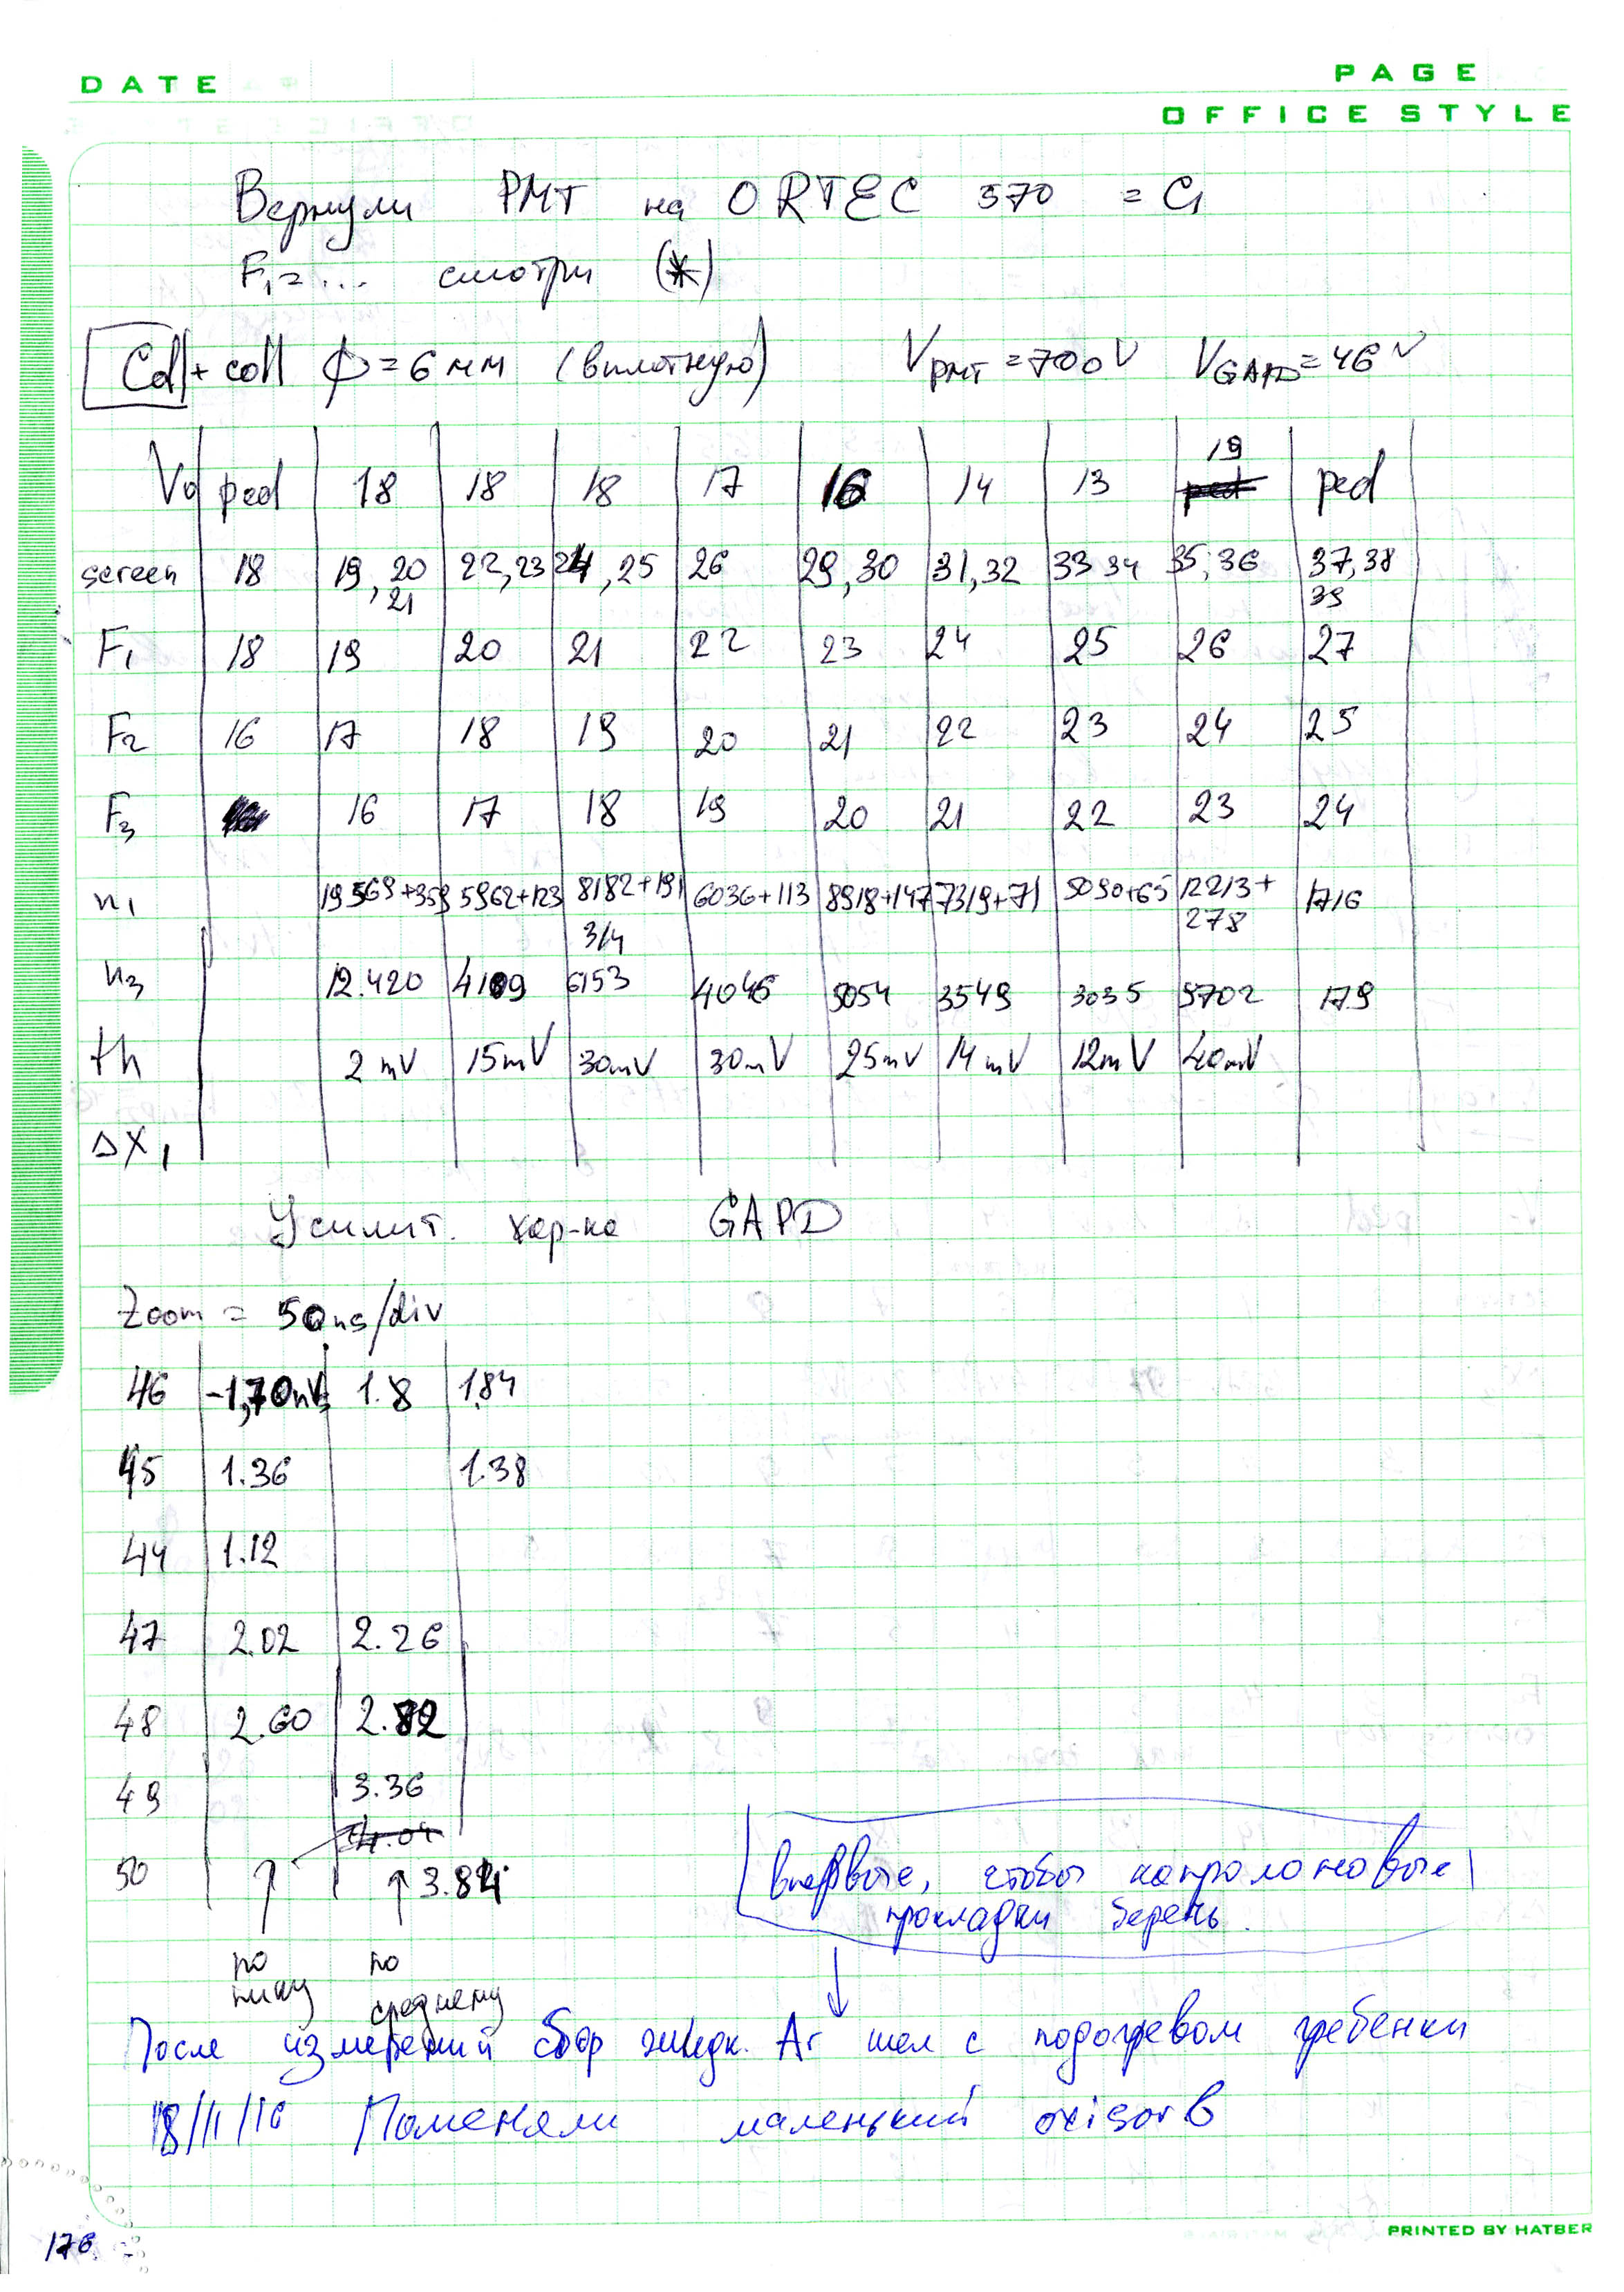 DATE
PAGE
OFFICE STYLE
Вернули PMT на ORTEC 570 = C1
F1 = ... смотри (*)
Coll + coll ϕ = 6 мм (вплотную) VPMT = 700V VGAPD = 46V
V0 ped 18 18 18 17 16 14 13 19 ped ped
screen 18 19, 20, 21 22, 23 24, 25 26 29, 30 31, 32 33 34 35, 36 37, 38 39
F1 18 19 20 21 22 23 24 25 26 27
F2 16 17 18 19 20 21 22 23 24 25
F3 16 17 18 19 20 21 22 23 24
n1 19569+359 5962+123 8182+191 6036+113 8918+147 7319+71 5090+65 12213+278 1716
314
n3 12.420 4109 6153 4046 5054 3549 3035 5702 179
th 2 mV 15mV 30mV 30mV 25mV 14mV 12mV 40mV
ΔX1
Усилит. хар-ка GAPD
Zoom = 50ns/div
46 -1,70mV 1.8 1.84
45 1.36 1.38
44 1.12
47 2.02 2.26
48 2.60 2.82
49 3.36
4.04
50 ↑ ↑ 3.84
по пику
по среднему
впервые, чтобы капролоновые
прокладки беречь.
После измерений сбор жидк. Ar шел с подогревом гребенки
18/11/16 Поменяли маленький oxisorb
176
PRINTED BY HATBER